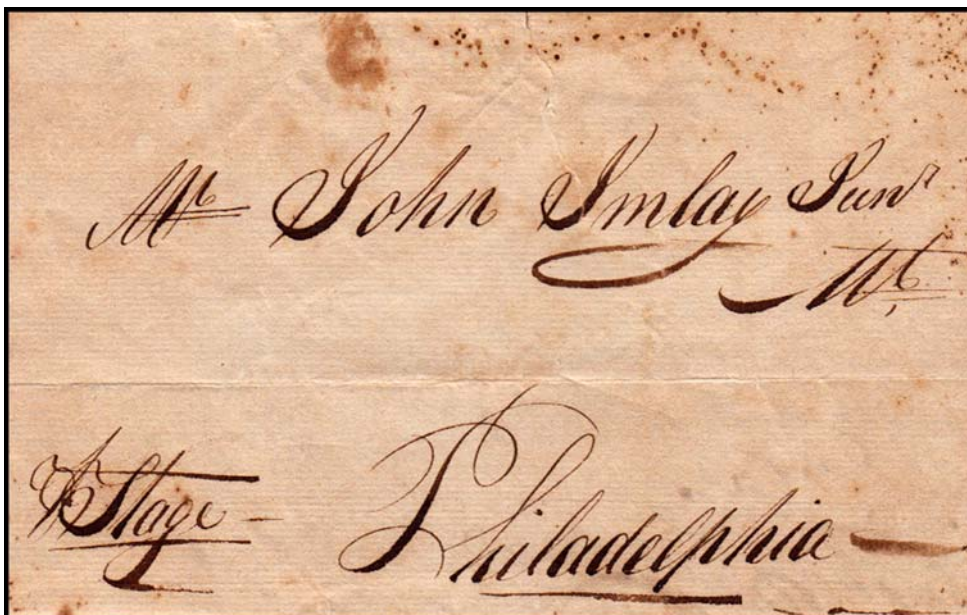 Mr John Imlay Junr
Mt
⅌ Stage – Philadelphia –